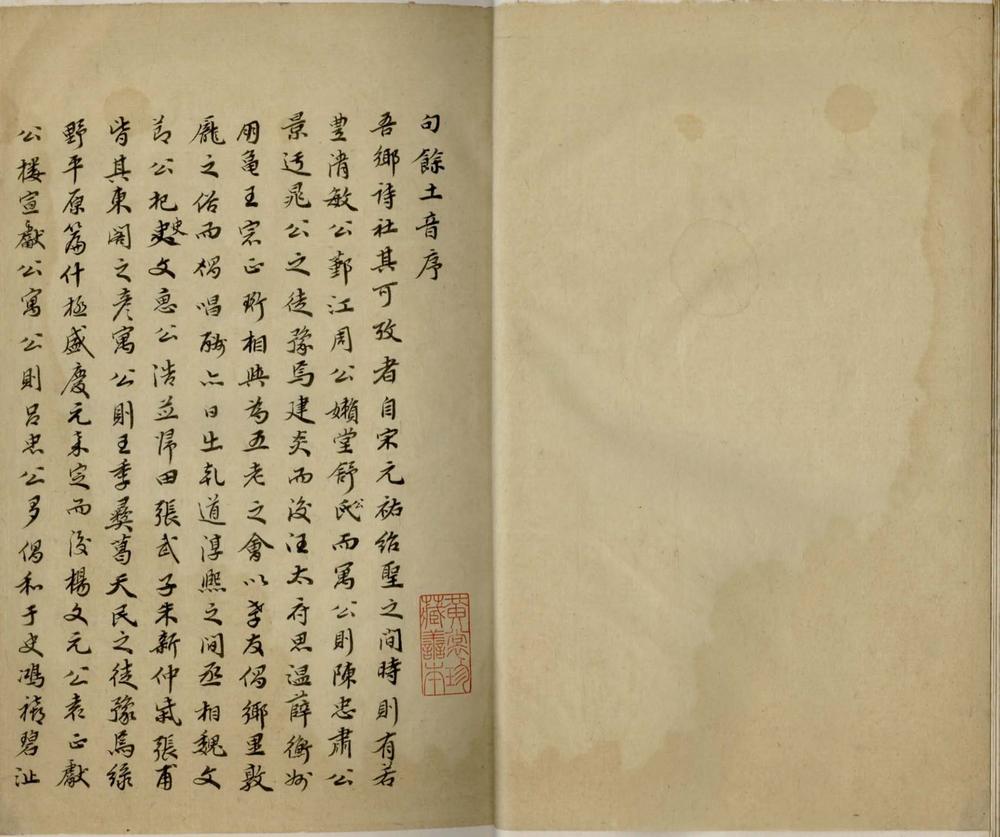 句餘土音序
吾鄉诗社其可攷者自宋元祐绍聖之间時則有若
豊清敏公鄞江周公嬾堂舒氏公而寓公則陳忠肅公
景迂晁公之徒豫焉建炎而後汪太府思温薛衡州
朋龜王宗正珩相與為五老之會以孝友倡鄉里敦
龎之俗而稍唱酬亦日出乾道淳熙之间丞相魏文
节公杞史史文惠公浩並歸田張武子朱新仲柴張甫
皆其東閣之彦寓公則王季彝葛天民之徒豫焉緑
野平原篇什極盛慶元嘉定而後楊文元公袁正獻
公楼宣獻公寓公則吕忠公多倡和于史鴻禧碧沚
黄裳珍
藏善本